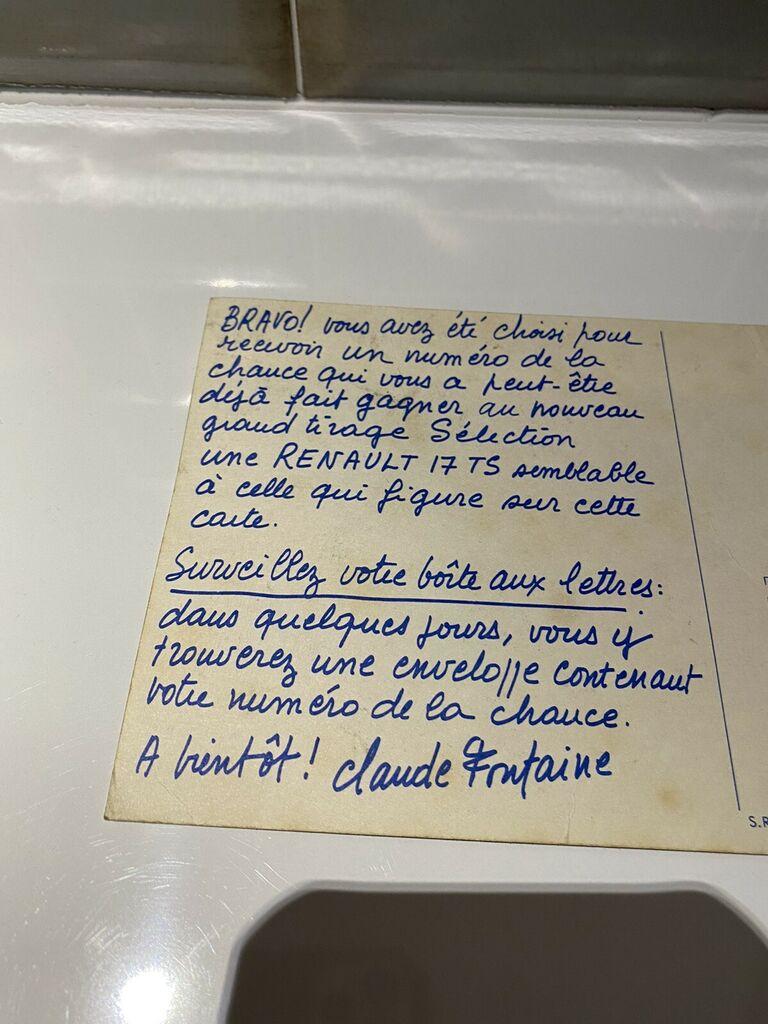 BRAVO! vous avez été choisi pour
recevoir un numéro de la
chance qui vous a peut-être
déjà fait gagner au nouveau
grand tirage Sélection
une RENAULT 17 TS semblable
à celle qui figure sur cette
carte.
Surveillez votre boîte aux lettres:
dans quelques jours, vous y
trouverez une enveloppe contenant
votre numéro de la chance.
A bientôt! Claude Fontaine